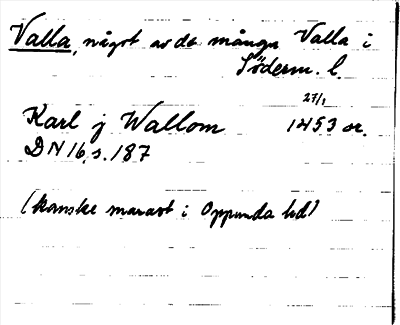 Valla, något av de många Valla i
Söderm. l.
27/1
Karl j Wallom 1453 or.
DN 16, s. 187
(kanske snarast i Oppunda hd)